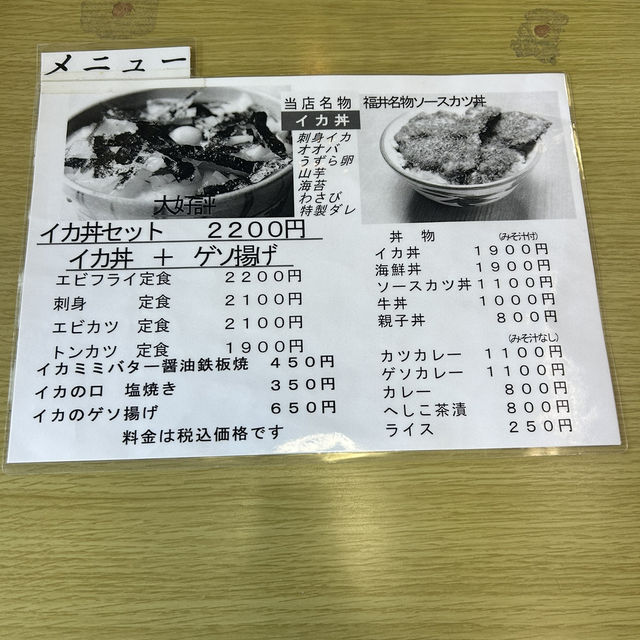 メニュー
大好評
当店名物
イカ丼
刺身イカ
オオバ
うずら卵
山芋
海苔
わさび
特製ダレ
福井名物ソースカツ丼
イカ丼セット 2200円
イカ丼 + ゲソ揚げ
エビフライ定食 2200円
刺身 定食 2100円
エビカツ 定食 2100円
トンカツ 定食 1900円
イカミミバター醤油鉄板焼 450円
イカの口 塩焼き 350円
イカのゲソ揚げ 650円
料金は税込価格です
丼 物 (みそ汁付)
イカ丼 1900円
海鮮丼 1900円
ソースカツ丼 1100円
牛丼 1000円
親子丼 800円
(みそ汁なし)
カツカレー 1100円
ゲソカレー 1100円
カレー 800円
へしこ茶漬 800円
ライス 250円